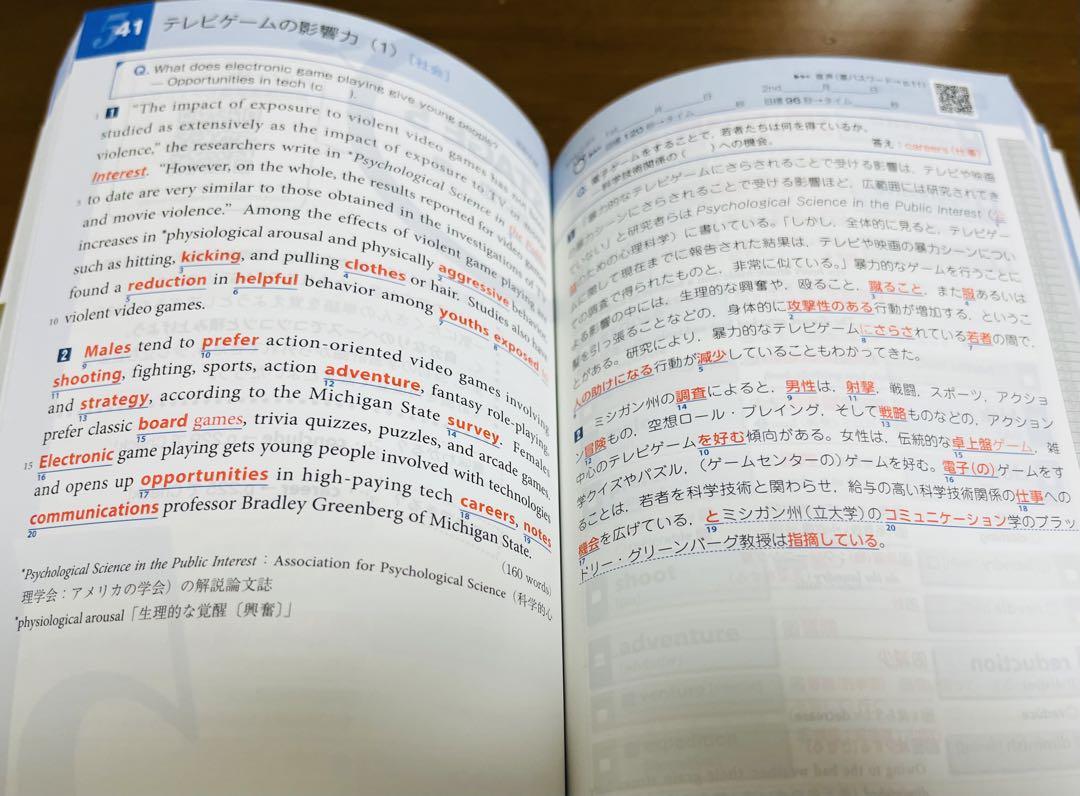 541 テレビゲームの影響力（1）［社会］
Q. What does electronic game playing give young people?
— Opportunities in tech (c    ).
1 "The impact of exposure to violent video games has not
studied as extensively as the impact of exposure to TV or
violence," the researchers write in *Psychological Science in
Interest. "However, on the whole, the results reported for video
5 to date are very similar to those obtained in the investigations of
and movie violence." Among the effects of violent game playing are
increases in *physiological arousal and physically aggressive behavior
such as hitting, kicking, and pulling clothes or hair. Studies also have
found a reduction in helpful behavior among youths exposed
10 violent video games.
2 Males tend to prefer action-oriented video games involving
shooting, fighting, sports, action adventure, fantasy role-playing,
and strategy, according to the Michigan State survey. Females
prefer classic board games, trivia quizzes, puzzles, and arcade games.
15 Electronic game playing gets young people involved with technologies
and opens up opportunities in high-paying tech careers, notes
communications professor Bradley Greenberg of Michigan State.
(160 words)
*Psychological Science in the Public Interest：Association for Psychological Science（科学的心
理学会：アメリカの学会）の解説論文誌
*physiological arousal「生理的な覚醒〔興奮〕」
2nd 月 日
月 日 目標96秒→タイム 秒
目標120秒→タイム 秒
Q. 電子ゲームをすることで、若者たちは何を得ているか。
科学技術関係の（ ）への機会。 答え：careers（仕事）
1 「暴力的なテレビゲームにさらされることで受ける影響は、テレビや映画
暴力シーンにさらされることで受ける影響ほど、広範囲には研究されてき
ていない」と研究者らはPsychological Science in the Public Interest（
のための心理科学）に書いている。「しかし、全体的に見ると、テレビゲー
に関して現在までに報告された結果は、テレビや映画の暴力シーンについ
ての調査で得られたものと、非常に似ている。」暴力的なゲームを行うことに
よる影響の中には、生理的な興奮や、殴ること、蹴ること、また服あるいは
髪を引っ張ることなどの、身体的に攻撃性のある行動が増加する、というこ
とがある。研究により、暴力的なテレビゲームにさらされている若者の間で、
人の助けになる行動が減少していることもわかってきた。
2 ミシガン州の調査によると、男性は、射撃、戦闘、スポーツ、アクショ
ン冒険もの、空想ロール・プレイング、そして戦略ものなどの、アクション
中心のテレビゲームを好む傾向がある。女性は、伝統的な卓上盤ゲーム、雑
学クイズやパズル、（ゲームセンターの）ゲームを好む。電子（の）ゲームをす
ることは、若者を科学技術と関わらせ、給与の高い科学技術関係の仕事への
機会を広げている、とミシガン州（立大学）のコミュニケーション学のブラッ
ドリー・グリーンバーグ教授は指摘している。
shoot
adventure
reduction